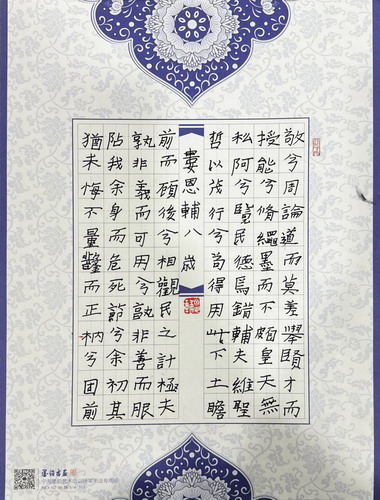 敬兮周論道而莫差舉賢才而
授能兮脩繩墨而不頗皇天無
私阿兮覽民德焉錯輔夫維聖
哲以茂行兮苟得用此下土瞻
婁恩輔八歲
前而顧後兮相觀民之計極夫
孰非義而可用兮孰非善而服
阽我余身而危死節兮余初其
猶未悔不量鑿而正枘兮固前
墨语书画